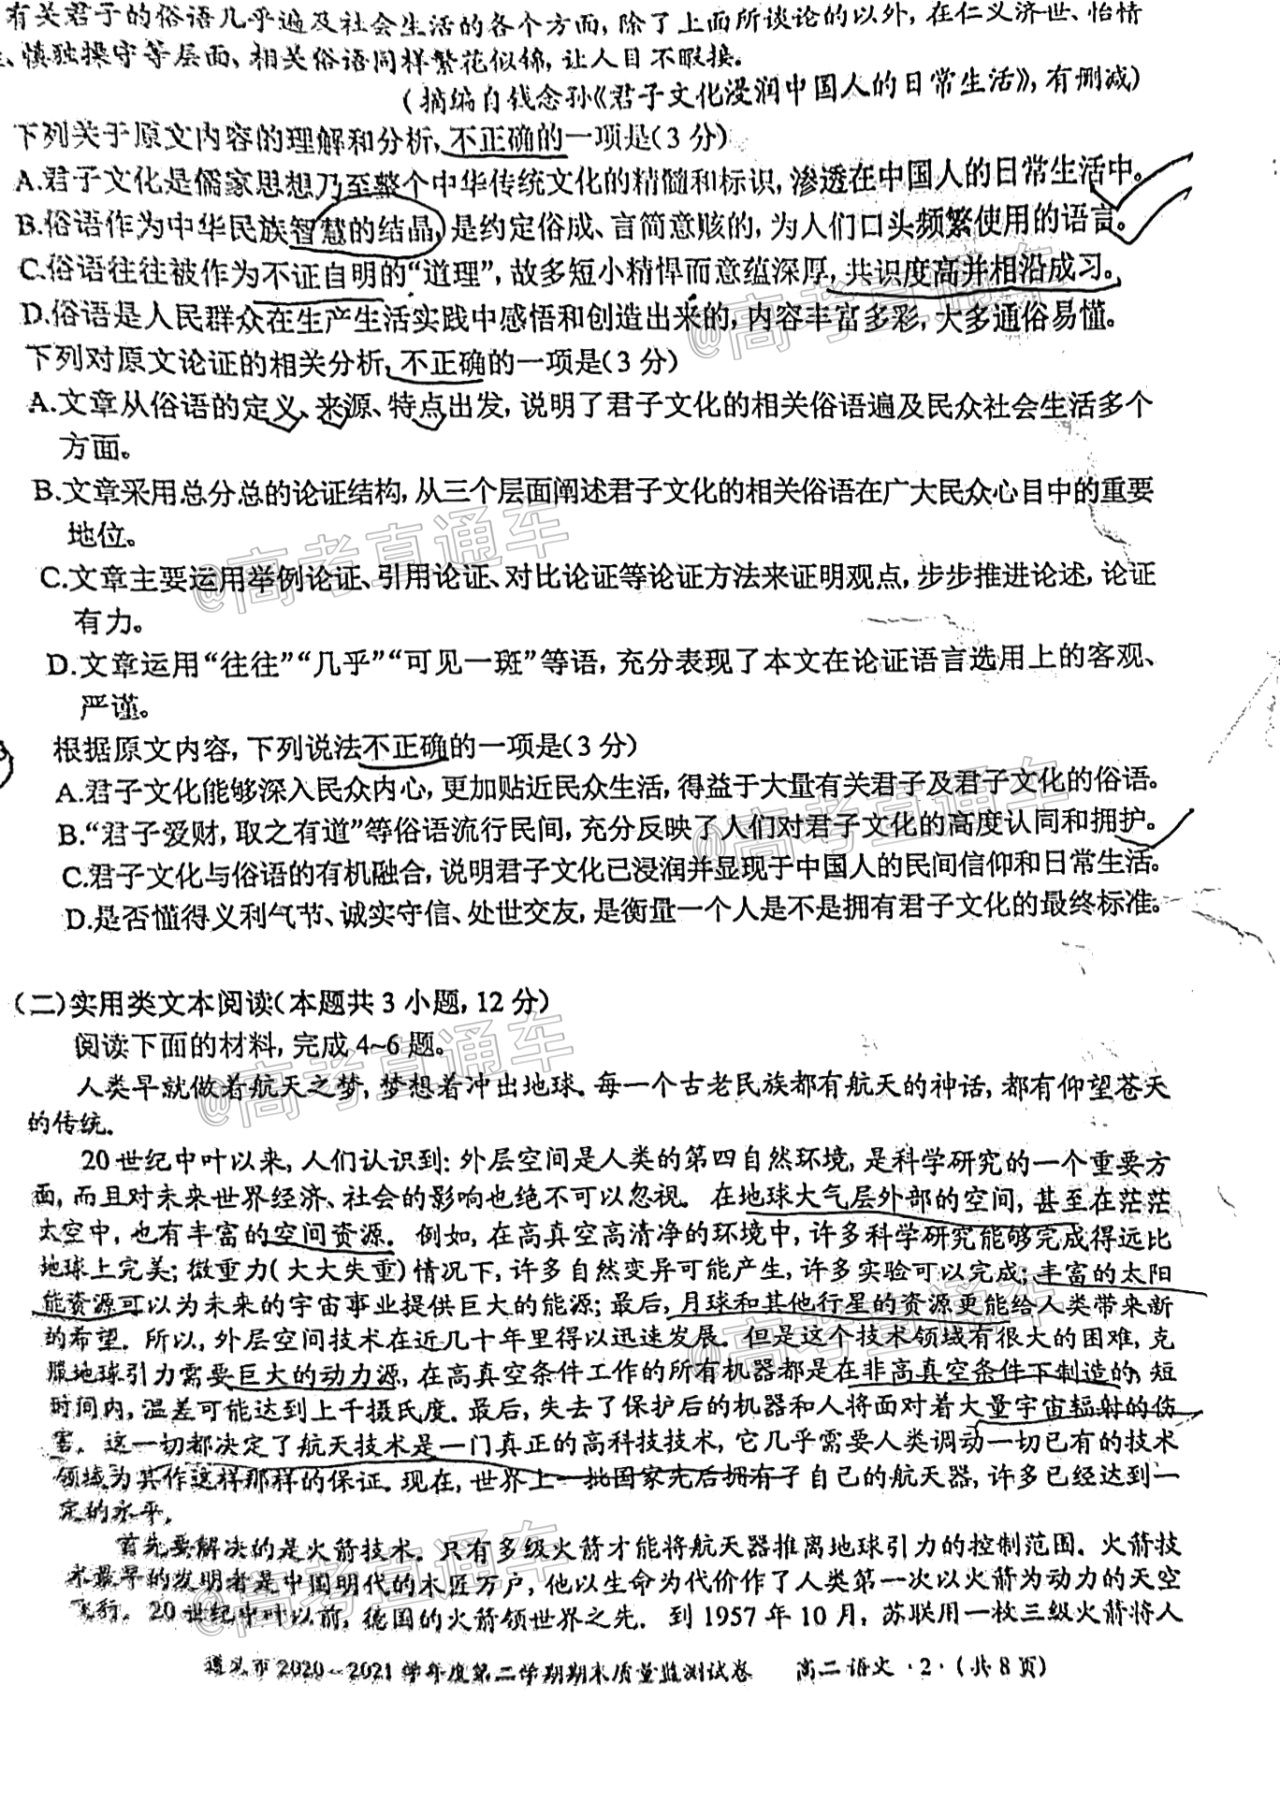 有关君子的俗语几乎遍及社会生活的各个方面,除了上面所谈论的以外,在仁义济世、怡情
、慎独操守等层面,相关俗语同样繁花似锦,让人目不暇接。
(摘编自钱念孙《君子文化浸润中国人的日常生活》,有删减)
下列关于原文内容的理解和分析,不正确的一项是(3分)
A.君子文化是儒家思想乃至整个中华传统文化的精髓和标识,渗透在中国人的日常生活中。
B.俗语作为中华民族智慧的结晶,是约定俗成、言简意赅的,为人们口头频繁使用的语言。
C.俗语往往被作为不证自明的“道理”,故多短小精悍而意蕴深厚,共识度高并相沿成习。
D.俗语是人民群众在生产生活实践中感悟和创造出来的,内容丰富多彩,大多通俗易懂。
下列对原文论证的相关分析,不正确的一项是(3分)
A.文章从俗语的定义、来源、特点出发,说明了君子文化的相关俗语遍及民众社会生活多个
方面。
B.文章采用总分总的论证结构,从三个层面阐述君子文化的相关俗语在广大民众心目中的重要
地位。
C.文章主要运用举例论证、引用论证、对比论证等论证方法来证明观点,步步推进论述,论证
有力。
D.文章运用“往往”“几乎”“可见一斑”等语,充分表现了本文在论证语言选用上的客观、
严谨。
根据原文内容,下列说法不正确的一项是(3分)
A.君子文化能够深入民众内心,更加贴近民众生活,得益于大量有关君子及君子文化的俗语。
B.“君子爱财,取之有道”等俗语流行民间,充分反映了人们对君子文化的高度认同和拥护。
C.君子文化与俗语的有机融合,说明君子文化已浸润并显现于中国人的民间信仰和日常生活。
D.是否懂得义利气节、诚实守信、处世交友,是衡量一个人是不是拥有君子文化的最终标准。
(二)实用类文本阅读(本题共3小题,12分)
阅读下面的材料,完成4~6题。
人类早就做着航天之梦,梦想着冲出地球。每一个古老民族都有航天的神话,都有仰望苍天
的传统。
20世纪中叶以来,人们认识到:外层空间是人类的第四自然环境,是科学研究的一个重要方
面,而且对未来世界经济、社会的影响也绝不可以忽视。在地球大气层外部的空间,甚至在茫茫
太空中,也有丰富的空间资源。例如,在高真空高清净的环境中,许多科学研究能够完成得远比
地球上完美;微重力(大大失重)情况下,许多自然变异可能产生,许多实验可以完成;丰富的太阳
能资源可以为未来的宇宙事业提供巨大的能源;最后,月球和其他行星的资源更能给人类带来新
的希望。所以,外层空间技术在近几十年里得以迅速发展。但是这个技术领域有很大的困难,克
服地球引力需要巨大的动力源,在高真空条件工作的所有机器都是在非高真空条件下制造的,短
时间内,温差可能达到上千摄氏度。最后,失去了保护后的机器和人将面对着大量宇宙辐射的伤
害。这一切都决定了航天技术是一门真正的高科技技术,它几乎需要人类调动一切已有的技术
领域为其作这样那样的保证。现在,世界上一批国家先后拥有了自己的航天器,许多已经达到一
定的水平。
首先要解决的是火箭技术。只有多级火箭才能将航天器推离地球引力的控制范围。火箭技
术最早的发明者是中国明代的木匠万户,他以生命为代价作了人类第一次以火箭为动力的天空
飞行。20世纪中叶以前,德国的火箭领世界之先。到1957年10月,苏联用一枚三级火箭将人
遵义市2020~2021学年度第二学期期末质量监测试卷 高二语文·2·(共8页)
@高考直通车
@高考直通车
@高考直通车
@高考直通车
@高考直通车
@高考直通车